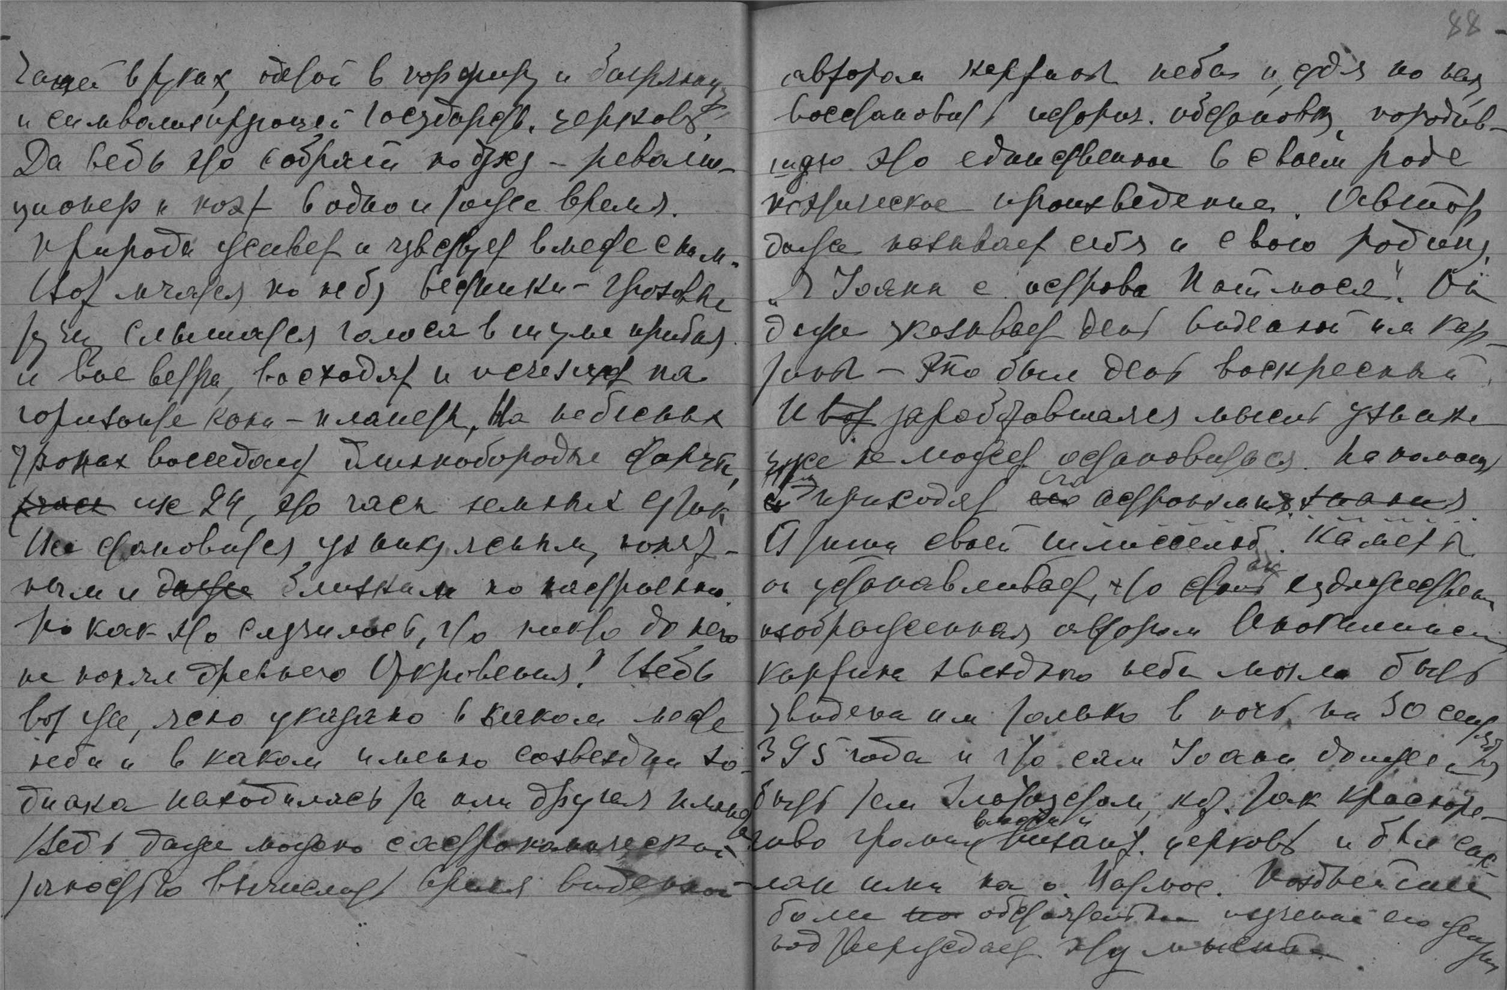 чашей в руках, одетой в порфиру и багряницу
и символизирующей государств. церковь.
Да ведь это собрат по духу – революционер
ционер и поэт в одно и тоже время.
Природа живет и чувствует вместе с ним.
Вот мчатся по небу всадники – грозовые
тучи, слышатся голоса в шуме прибоя
и вое ветра, восходят и исчезают на
горизонте кони – планеты, На небесных
тронах восседают длиннобородые старцы,
их 24, это часы земных суток
Все становится узнику ясным, понят-
ным и даже близким по настроению.
Но как это случилось, что никто до него
не понял древнего Откровения! Ведь
вот же, ясно указано в каком месте
неба и в каком именно созвездии зо-
диака находилась та или другая планета
Ведь даже можно с астрономической
точностью вычислить время виденной
88
автором картины неба и, судя по ней,
восстановить историч. обстановку, породив-
шую это единственное в своем роде
поэтическое произведение. Автор
даже называет себя и свою родину,
„Я Иоанн с острова Патмоса". Он
даже указывает день виденной им кар-
тины – Это был день воскресный.
И вот заработавшая мысль узника
уже не может остановиться. На помощь
приходят его астрономич. знания
В тиши своей шлиссельб. камеры
он устанавливает, что так художественно
изображенная автором Апокалипсиса
картина звездного неба могла быть
увидена им только в ночь на 30 сентября
395 года и что сам Иоанн должен
быть тем Златоустом, кот. так красноре-
чиво громил византий. церковь и был сос-
лан ими на о. Патмос. Позднейшее
более обстоятельное изучение его жизни
подтверждает эту мысль.